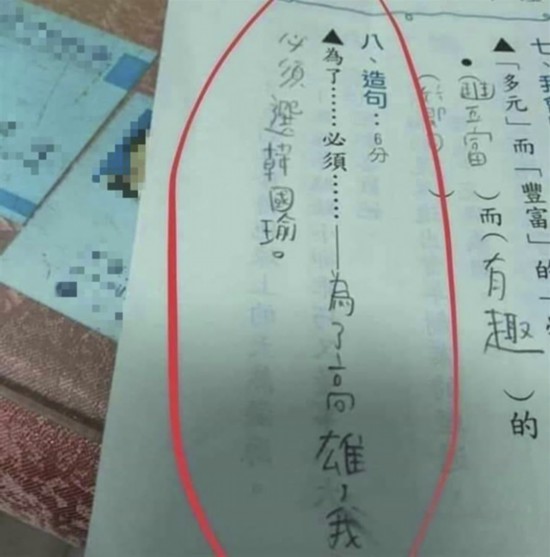 七、
▲「多元」而「豐富」的
富)而(有趣)的
八、造句:6分
▲為了……必須……——為了高雄,我
必須選韓國瑜。